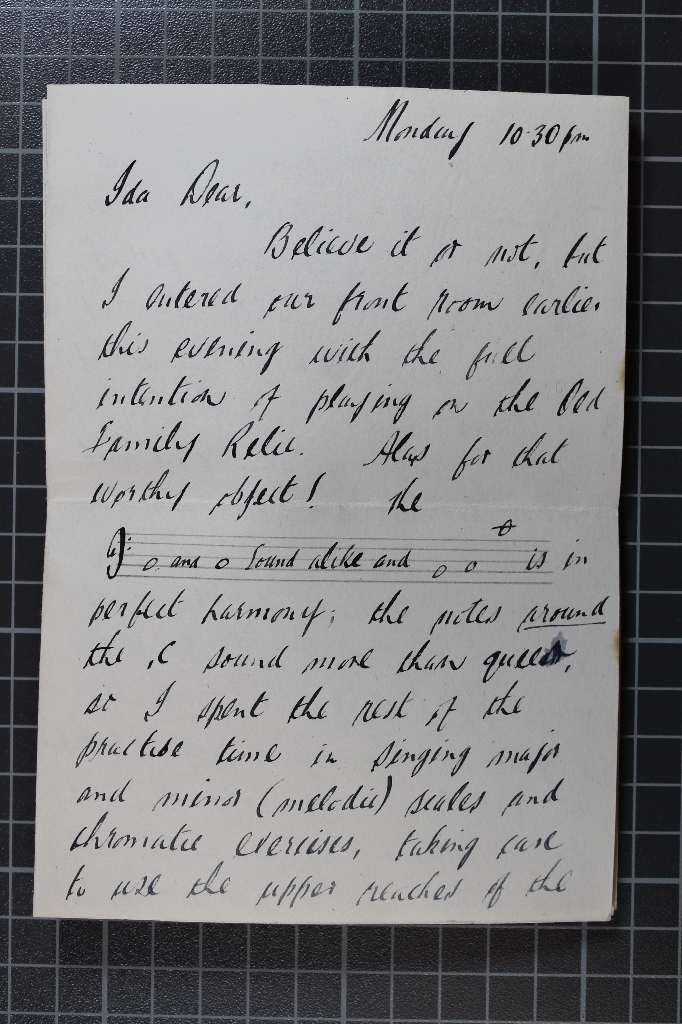 Monday 10.30pm
Ida Dear,
Believe it or not, but
I entered our front room earlier
this evening with the full
intention of playing on the Old
Family Relic. Alas for that
worthy object! the
and sound alike and is in
perfect harmony; the notes around
the C sound more than queer,
so I spent the rest of the
practise time in singing major
and minor (melodic) scales and
chromatic exercises, taking care
to use the upper reaches of the